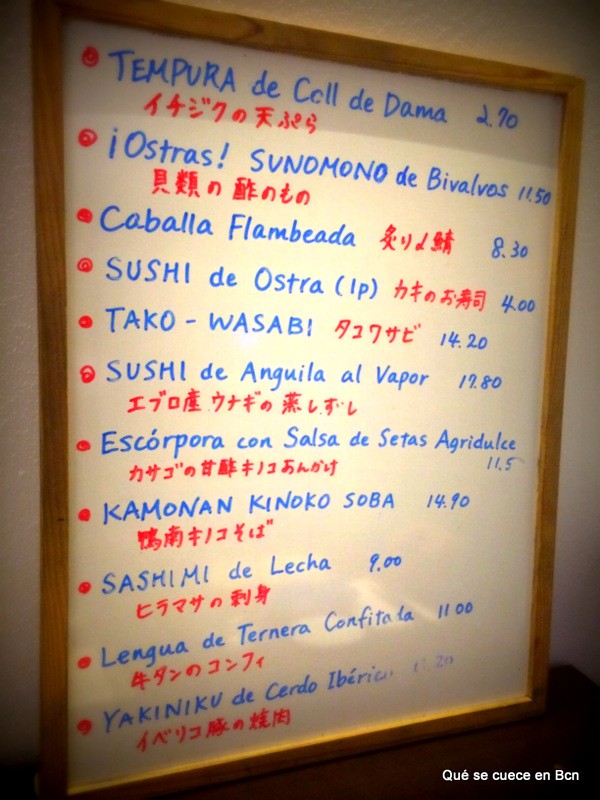 TEMPURA de Coll de Dama 2.70
イチジクの天ぷら
¡Ostras! SUNOMONO de Bivalvos 11.50
貝類の酢のもの
Caballa Flambeada 炙り〆鯖 8.30
SUSHI de Ostra (1p) カキのお寿司 4.00
TAKO - WASABI タコワサビ 14.20
SUSHI de Anguila al Vapor 17.80
エブロ産ウナギの蒸しずし
Escórpora con Salsa de Setas Agridulce
11.5
カサゴの甘酢キノコあんかけ
KAMONAN KINOKO SOBA 14.90
鴨南キノコそば
SASHIMI de Lecha 9.00
ヒラマサの刺身
Lengua de Ternera Confitada 11.00
牛タンのコンフィ
YAKINIKU de Cerdo Ibérico
イベリコ豚の焼肉
Qué se cuece en Bcn